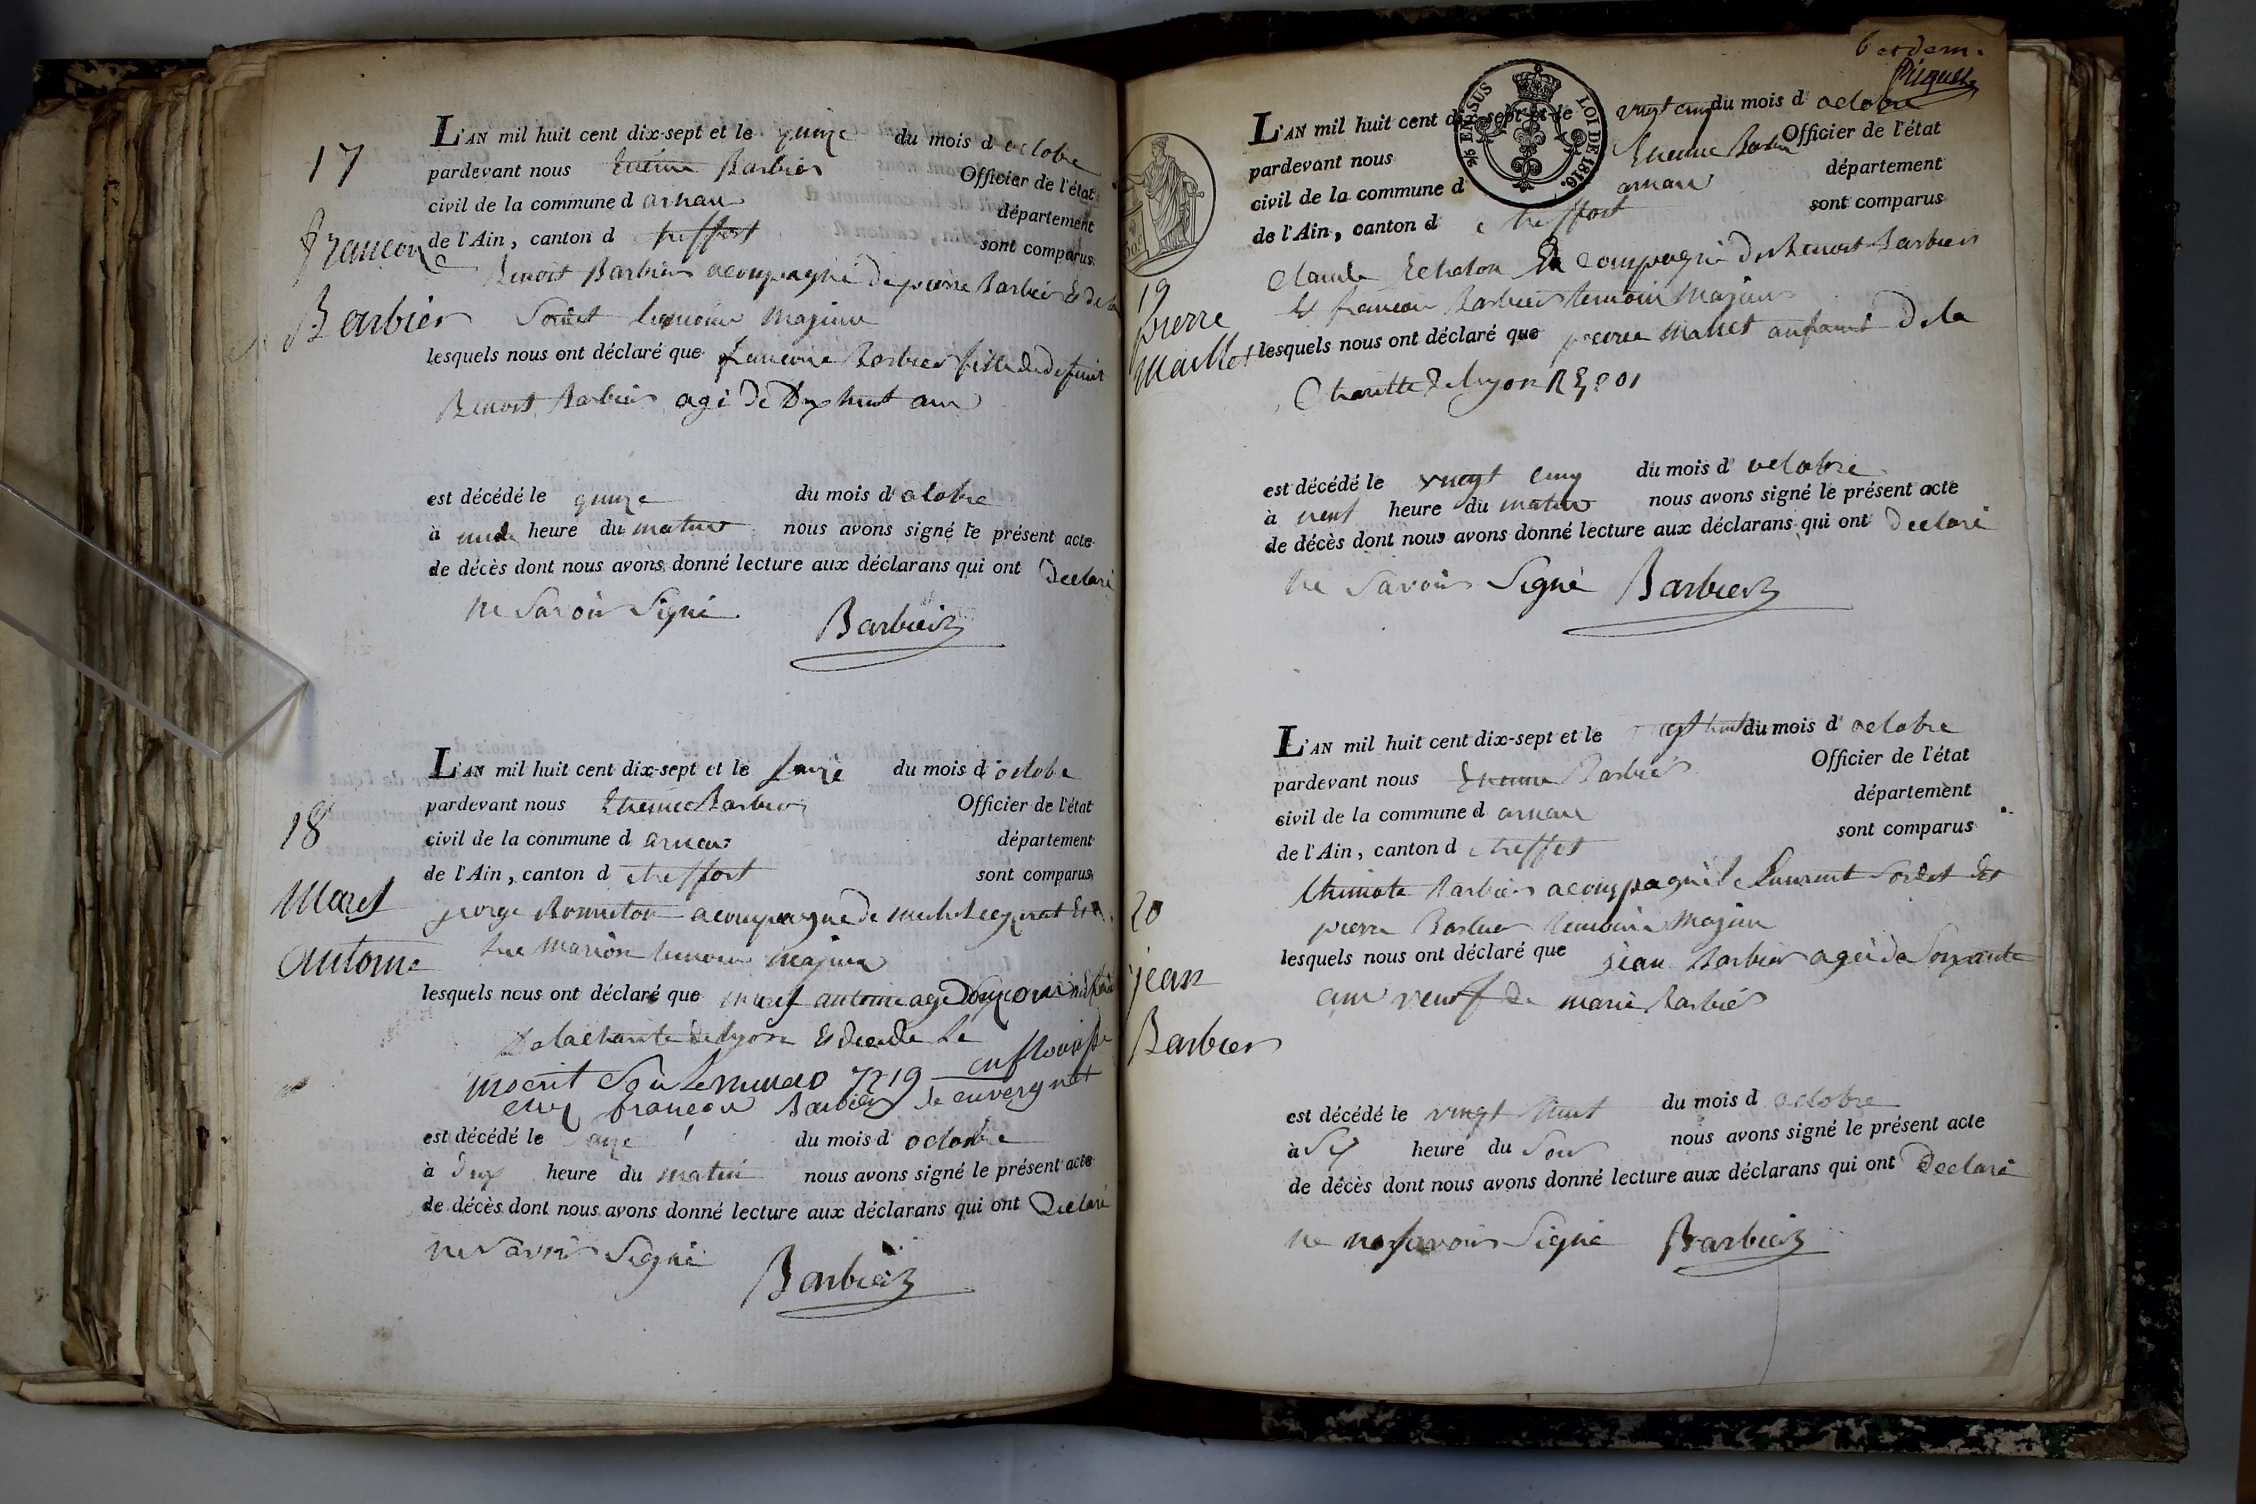 17
francoise
Barbier
L'AN mil huit cent dix-sept et le quinze du mois d octobre
pardevant nous Etiene Barbier Officier de l'état
civil de la commune d arnan département
de l'Ain, canton d treffort sont comparus
Benoit Barbier acompagné de pierre Barbier Et de
Sordet temoins Majeur
lesquels nous ont déclaré que francoise Barbier fille de defunt
Benoit Barbier agé de Dix huit ans
est décédé le quinze du mois d' octobre
à heure du matin nous avons signé le présent acte
de décès dont nous avons donné lecture aux déclarans qui ont Declaré
ne Savoir Signé
Barbier
18
Maret
antoine
L'AN mil huit cent dix-sept et le seize du mois d octobre
pardevant nous Etienne Barbier Officier de l'état
civil de la commune d arnans département
de l'Ain, canton d treffort sont comparus
george acompagné de Et
Marion temoins majeur
lesquels nous ont déclaré que maret antoine agé Donze ans
De la charité de lyon
inscrit Sou le numero 7219
chez francois Barbier
est décédé le seize du mois d' octobre
à Deux heure du matin nous avons signé le présent acte
de décès dont nous avons donné lecture aux déclarans qui ont Declaré
ne Savoir Signé
Barbier
6 et dern.
Piquet
96 EN SUS LOI DE 1816.
L'AN mil huit cent dix-sept et le vingt cinq du mois d' octobre
pardevant nous Etienne Barbier Officier de l'état
civil de la commune d arnans département
de l'Ain, canton d treffort sont comparus
19
pierre
Maillet
Claude Echalon En Compagnie de Benoit Barbier
Et francois Barbier temoin Majeur
lesquels nous ont déclaré que pierre Maillet anfant de la
Charitté de lyon
est décédé le vingt cinq du mois d' octobre
à neuf heure du matin nous avons signé le présent acte
de décès dont nous avons donné lecture aux déclarans qui ont Declaré
ne Savoir Signé Barbier
L'AN mil huit cent dix-sept et le vingt huit du mois d' octobre
pardevant nous Etienne Barbier Officier de l'état
civil de la commune d arnans département
de l'Ain, canton d treffort sont comparus
20
jean
Barbier
Barbier acompagné de Laurent Sordet Et
pierre Barbier temoins Majeur
lesquels nous ont déclaré que jean Barbier agé de Soixante
ans veuf de marie Barbier
est décédé le vingt huit du mois d octobre
à Six heure du Soir nous avons signé le présent acte
de décès dont nous avons donné lecture aux déclarans qui ont Declaré
ne savoir Signé Barbier